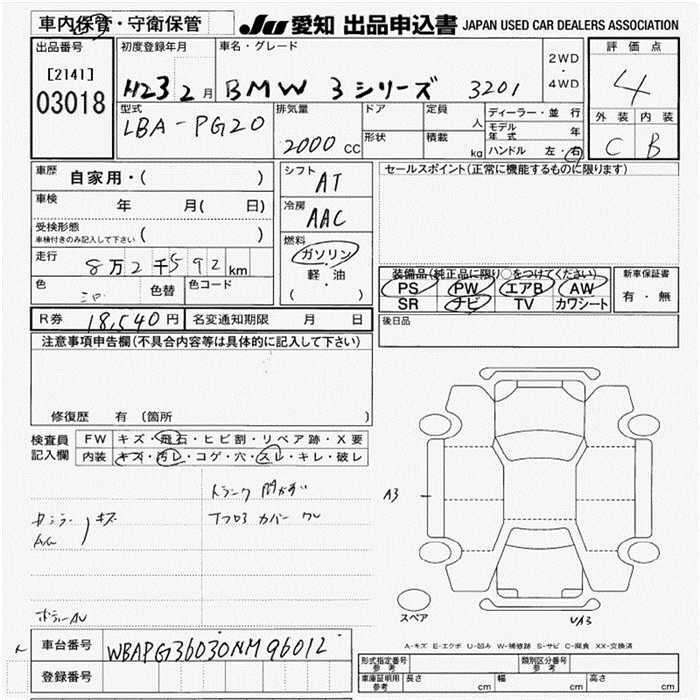 車内保管・守衛保管
JU 愛知 出品申込書 JAPAN USED CAR DEALERS ASSOCIATION
出品番号
[2141]
03018
初度登録年月
H23 2月
車名・グレード
BMW 3シリーズ 320i
2WD
・
4WD
評価点
4
外装 内装
C B
型式
LBA-PG20
排気量
2000 CC
ドア
形状
定員
人
積載
kg
ディーラー・並行
モデル年式 年
ハンドル 左・右
車歴
自家用・( )
車検
年 月( 日)
受検形態
車検付きのみ記入して下さい ( )
走行
8万2千592km
色
色替
色コード
シフト
AT
冷房
AAC
燃料
ガソリン
・
軽・油
( )
セールスポイント(正常に機能するものに限ります)
装備品(純正品に限り○をつけてください)
PS PW エアB AW
SR ナビ TV カワシート
新車保証書
有・無
R券 18,540円
名変通知期限 月 日
後日品
注意事項申告欄(不具合内容等は具体的に記入して下さい)
修復歴 有 〔箇所 〕
検査員
記入欄
FW キズ・飛石・ヒビ割・リペア跡・X要
内装 キズ・汚レ・コゲ・穴・スレ・キレ・破レ
トランク 内キズ
キズ
カバー
A3
スペア
UA3
A-キズ E-エクボ U-凹み W-補修跡 S-サビ C-腐食 XX-交換済
車台番号
WBAPG36030NM96012
登録番号
形式指定番号
参考
類別区分番号
参考
車庫証明用
参考
長さ cm
幅 cm
高さ cm